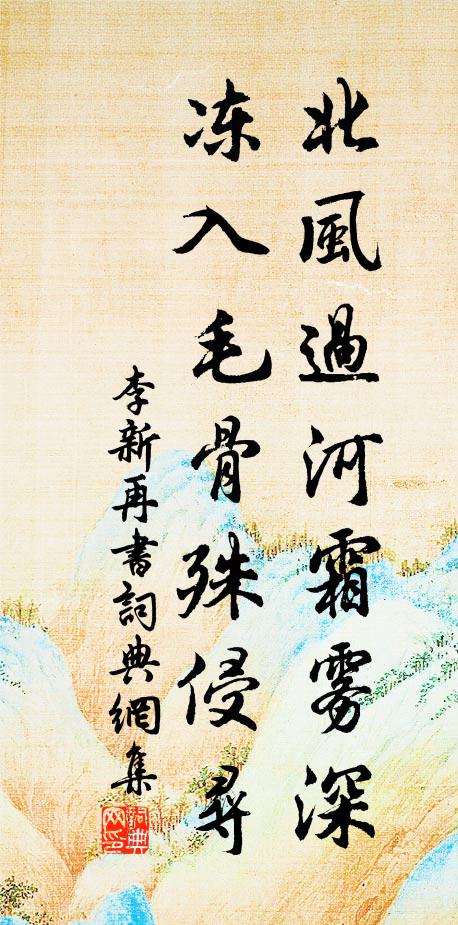 北風過河霜雾深
冻入毛骨殊侵尋
李新再書詞典網集
詞典网印